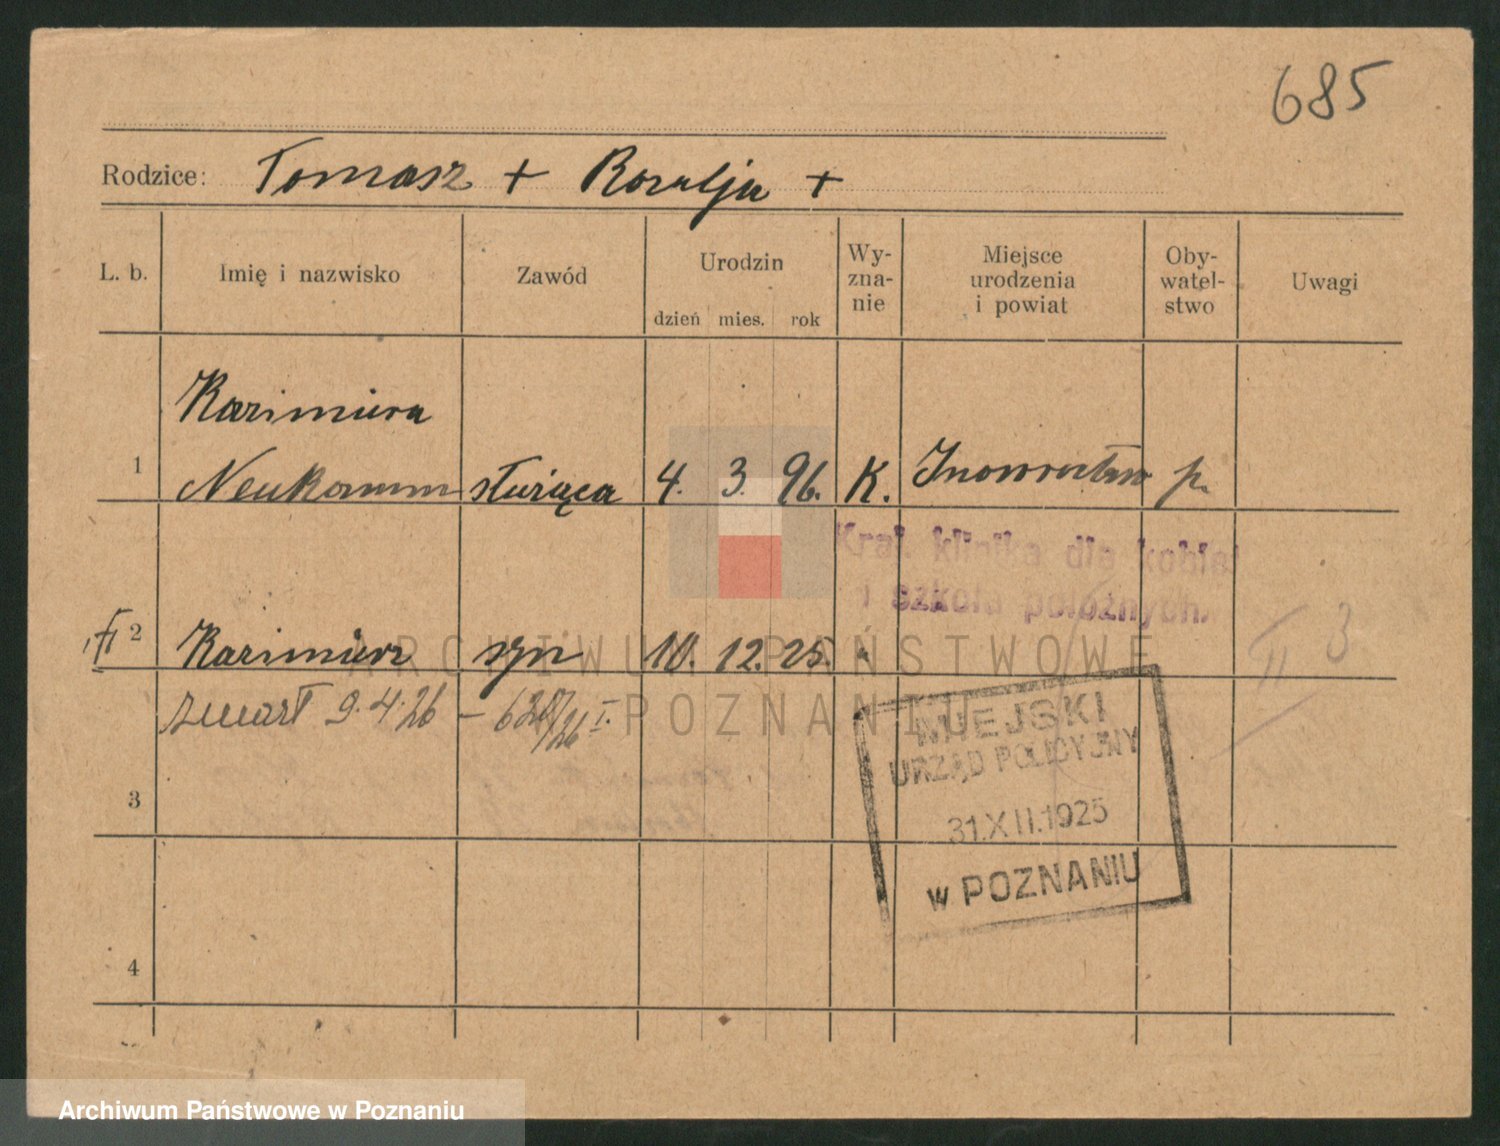 685
Rodzice: Tomasz + Rozalja +
L. b. Imię i nazwisko Zawód Urodzin dzień mies. rok Wy-zna-nie Miejsce urodzenia i powiat Oby-watel-stwo Uwagi
Kazimiera
1 Neukamm służąca 4. 3. 96. K. Inowrocław p.
Król. klinika dla kobiet
i szkoła położnych.
2 Kazimierz syn 10. 12. 25.
II 3
ARCHIWUM PAŃSTWOWE
zmarł 9.4.26
POZNANIU
MIEJSKI
URZĄD POLICYJNY
3
31.XII.1925
w POZNANIU
4
Archiwum Państwowe w Poznaniu